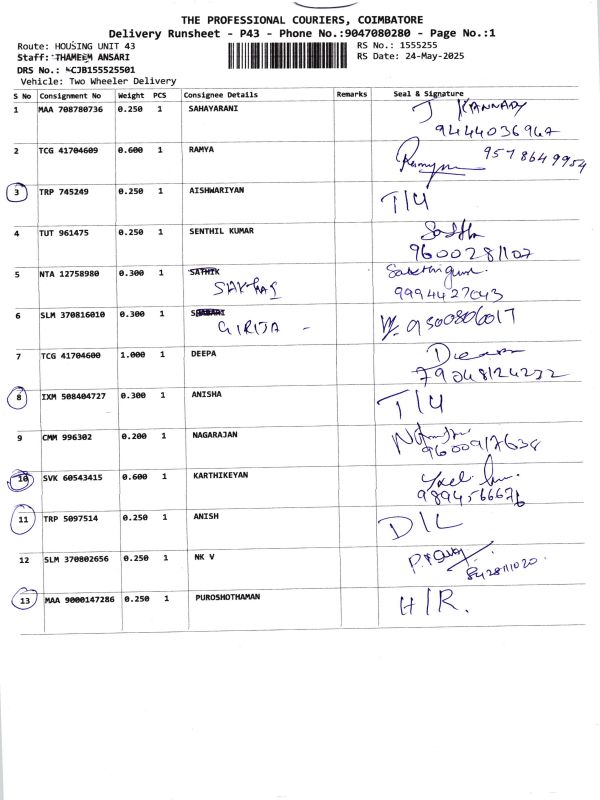 THE PROFESSIONAL COURIERS, COIMBATORE
Delivery Runsheet - P43 - Phone No.:9047080280 - Page No.:1
Route: HOUSING UNIT 43 RS No.: 1555255
Staff: THAMEEM ANSARI RS Date: 24-May-2025
DRS No.: CJB155525501
Vehicle: Two Wheeler Delivery
S No Consignment No Weight PCS Consignee Details Remarks Seal & Signature
1 MAA 708780736 0.250 1 SAHAYARANI J KANNADY
9444036967
2 TCG 41704609 0.600 1 RAMYA 9578649954
3 TRP 745249 0.250 1 AISHWARIYAN T/4
4 TUT 961475 0.250 1 SENTHIL KUMAR
9600281107
5 NTA 12758980 0.300 1 SATHIK
9994427043
6 SLM 370816010 0.300 1 GIRIJA 9500806017
7 TCG 41704600 1.000 1 DEEPA
8 IXM 508404727 0.300 1 ANISHA T/4
9 CMM 996302 0.200 1 NAGARAJAN
9600917638
10 SVK 60543415 0.600 1 KARTHIKEYAN
11 TRP 5097514 0.250 1 ANISH D/L
12 SLM 370802656 0.250 1 NK V
13 MAA 9000147286 0.250 1 PUROSHOTHAMAN H/R.